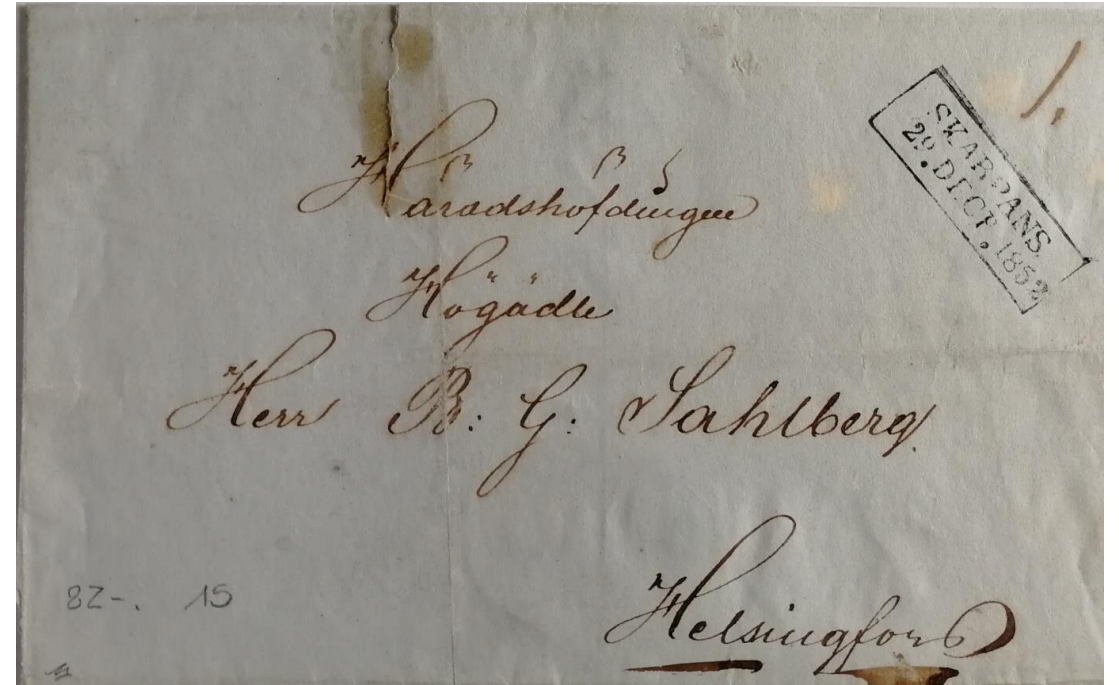 1.
SKARPANS.
29. DECR. 1852
Häradshöfdingen
Högädle
Herr B: G: Sahlberg.
Helsingfors
82-. 15